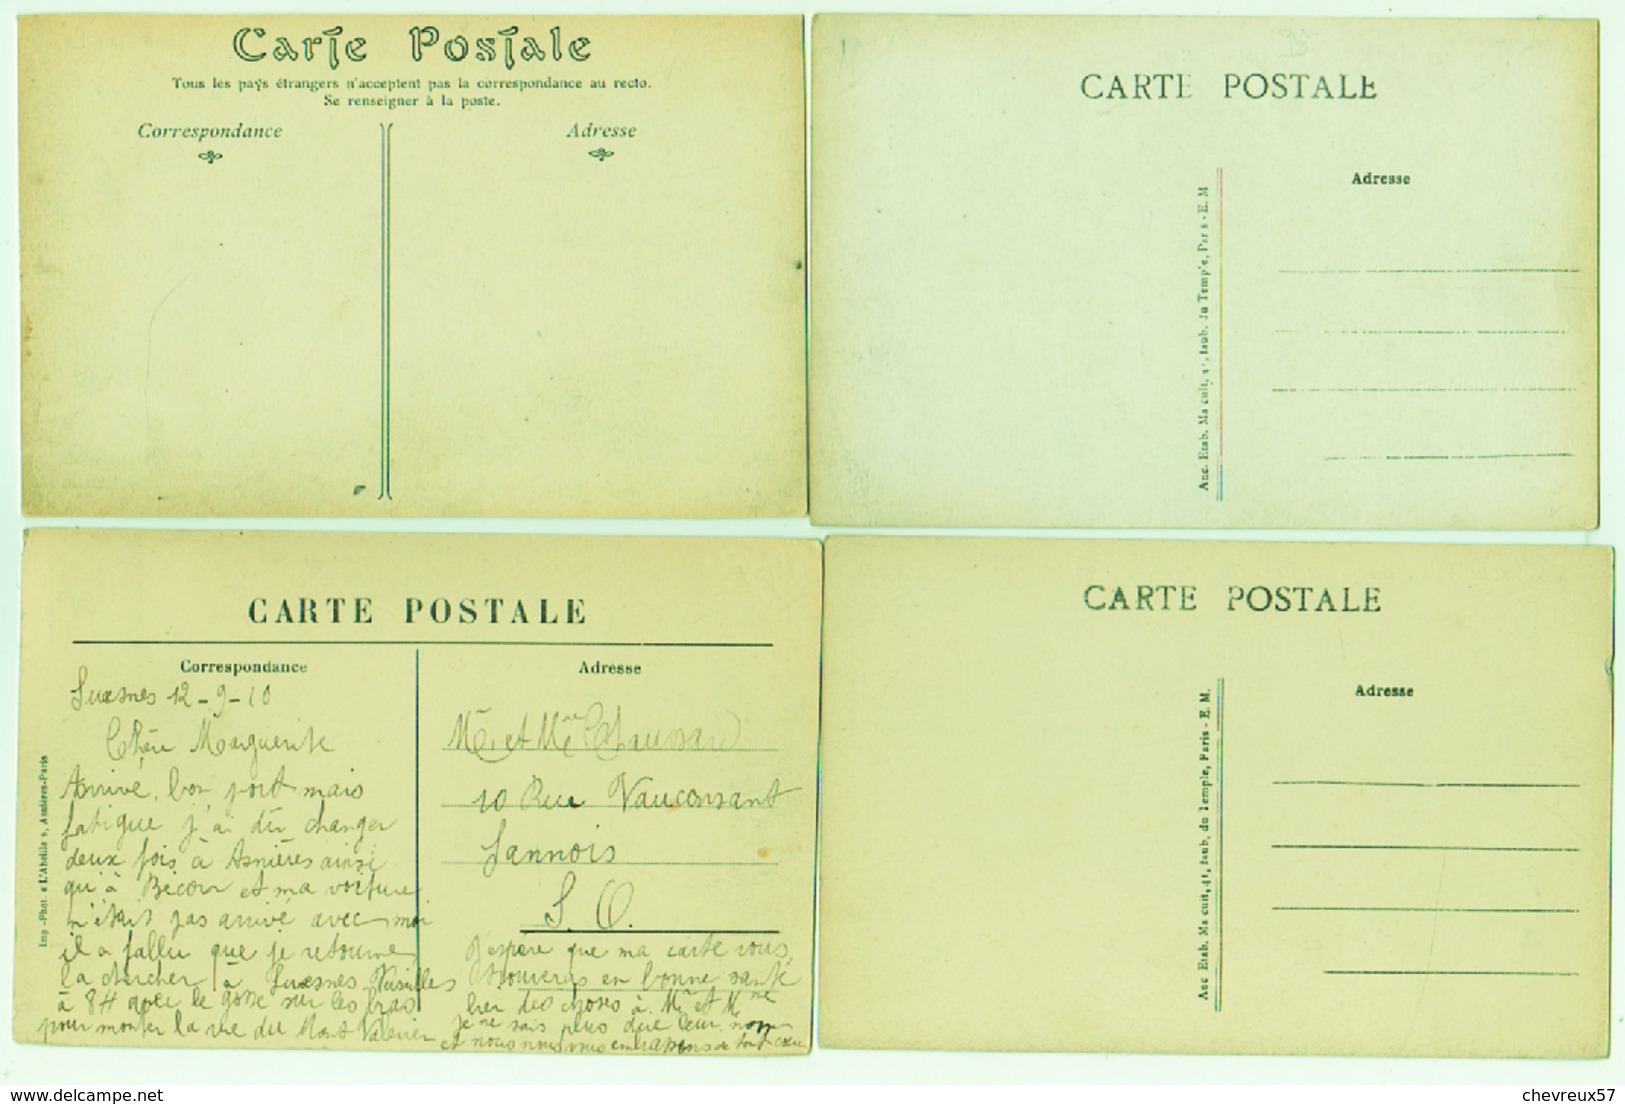 Carte Postale
Tous les pays étrangers n'acceptent pas la correspondance au recto.
Se renseigner à la poste.
Correspondance
Adresse
CARTE POSTALE
Adresse
Anc. Etab. Ma cuit, 41, faub. du Temple, Paris - E. M
CARTE POSTALE
Correspondance
Adresse
Imp-Phot. « L'Abeille », Asnières-Paris
Suresnes 12-9-10
Chère Marguerite
Arrivé bon port mais
fatigue j'ai dû changer
deux fois à Asnières ainsi
qu'à Bécon et ma voiture
n'était pas arrivé avec moi
il a fallu que je retourne
la chercher à Suresnes
à 8H avec le gosse sur les bras
pour monter la rue du Mont Valérien
Mr et Mme Chaussard
10 Rue Vauconsant
Sannois
S. O.
J'espère que ma carte vous
trouveras en bonne santé
bien des choses à Mr et Mme
je ne sais plus que leur nom
et nous nous vous embrassons de tout cœur
CARTE POSTALE
Adresse
Anc Etab. Ma cuit, 41, faub. du Temple, Paris - E. M.
delcampe.net
chevreux57